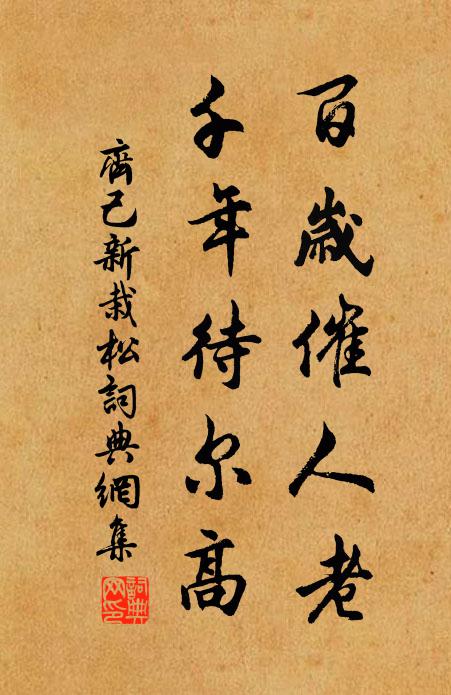 百歲催人老
千年待尔高
齊己新栽松詞典網集
詞典网印